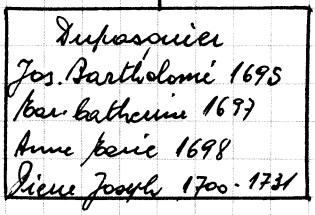 Dupasquier
Jos. Bartholomé 1695
Mar. Catherine 1697
Anne Marie 1698
Pierre Joseph 1700-1731